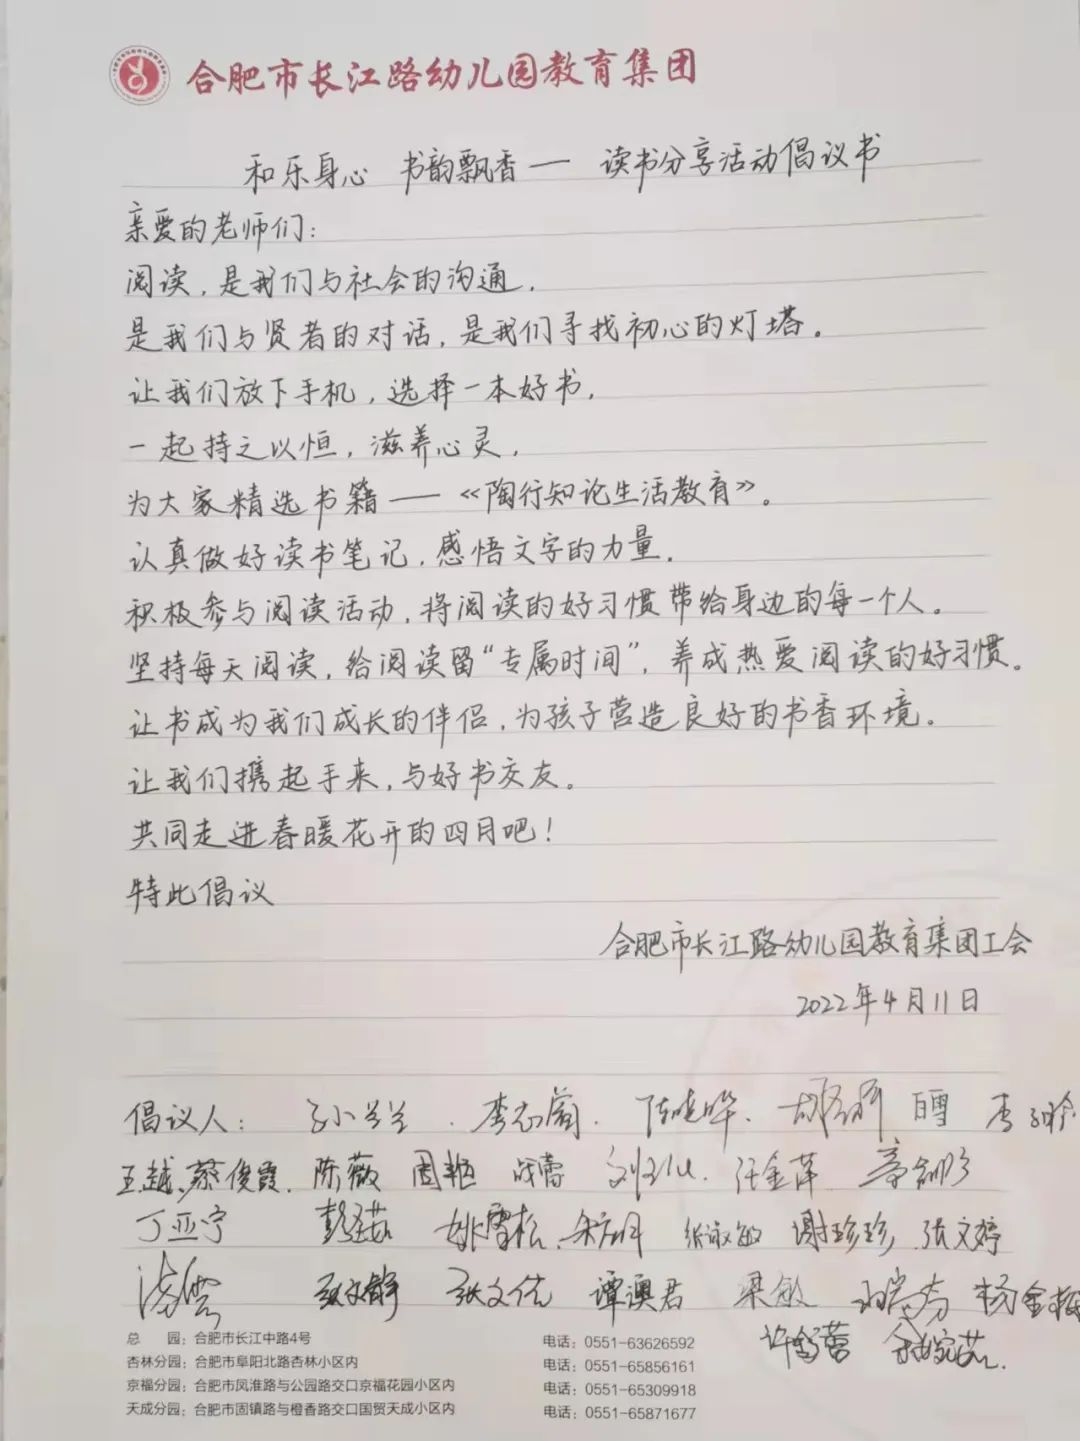 合肥市长江路幼儿园教育集团
和乐身心 书韵飘香— 读书分享活动倡议书
亲爱的老师们：
阅读，是我们与社会的沟通，
是我们与贤者的对话，是我们寻找初心的灯塔。
让我们放下手机，选择一本好书，
一起持之以恒，滋养心灵，
为大家精选书籍——《陶行知论生活教育》。
认真做好读书笔记，感悟文字的力量，
积极参与阅读活动，将阅读的好习惯带给身边的每一个人。
坚持每天阅读，给阅读留“专属时间”，养成热爱阅读的好习惯。
让书成为我们成长的伴侣，为孩子营造良好的书香环境。
让我们携起手来，与好书交友。
共同走进春暖花开的四月吧！
特此倡议
合肥市长江路幼儿园教育集团工会
2022年4月11日
倡议人： 陈晓晔. 白雪
王越. 蔡俊霞. 陈薇 周艳 战蕾 汪金萍
丁亚宁 姚雪松. 张淑敏 谢珍珍. 张文婷
张文静 张文优 谭澳君 梁敏 杨金梅
总 园：合肥市长江中路4号 电话：0551-63626592
杏林分园：合肥市阜阳北路杏林小区内 电话：0551-65856161
京福分园：合肥市凤淮路与公园路交口京福花园小区内 电话：0551-65309918
天成分园：合肥市固镇路与橙香路交口国贸天成小区内 电话：0551-65871677